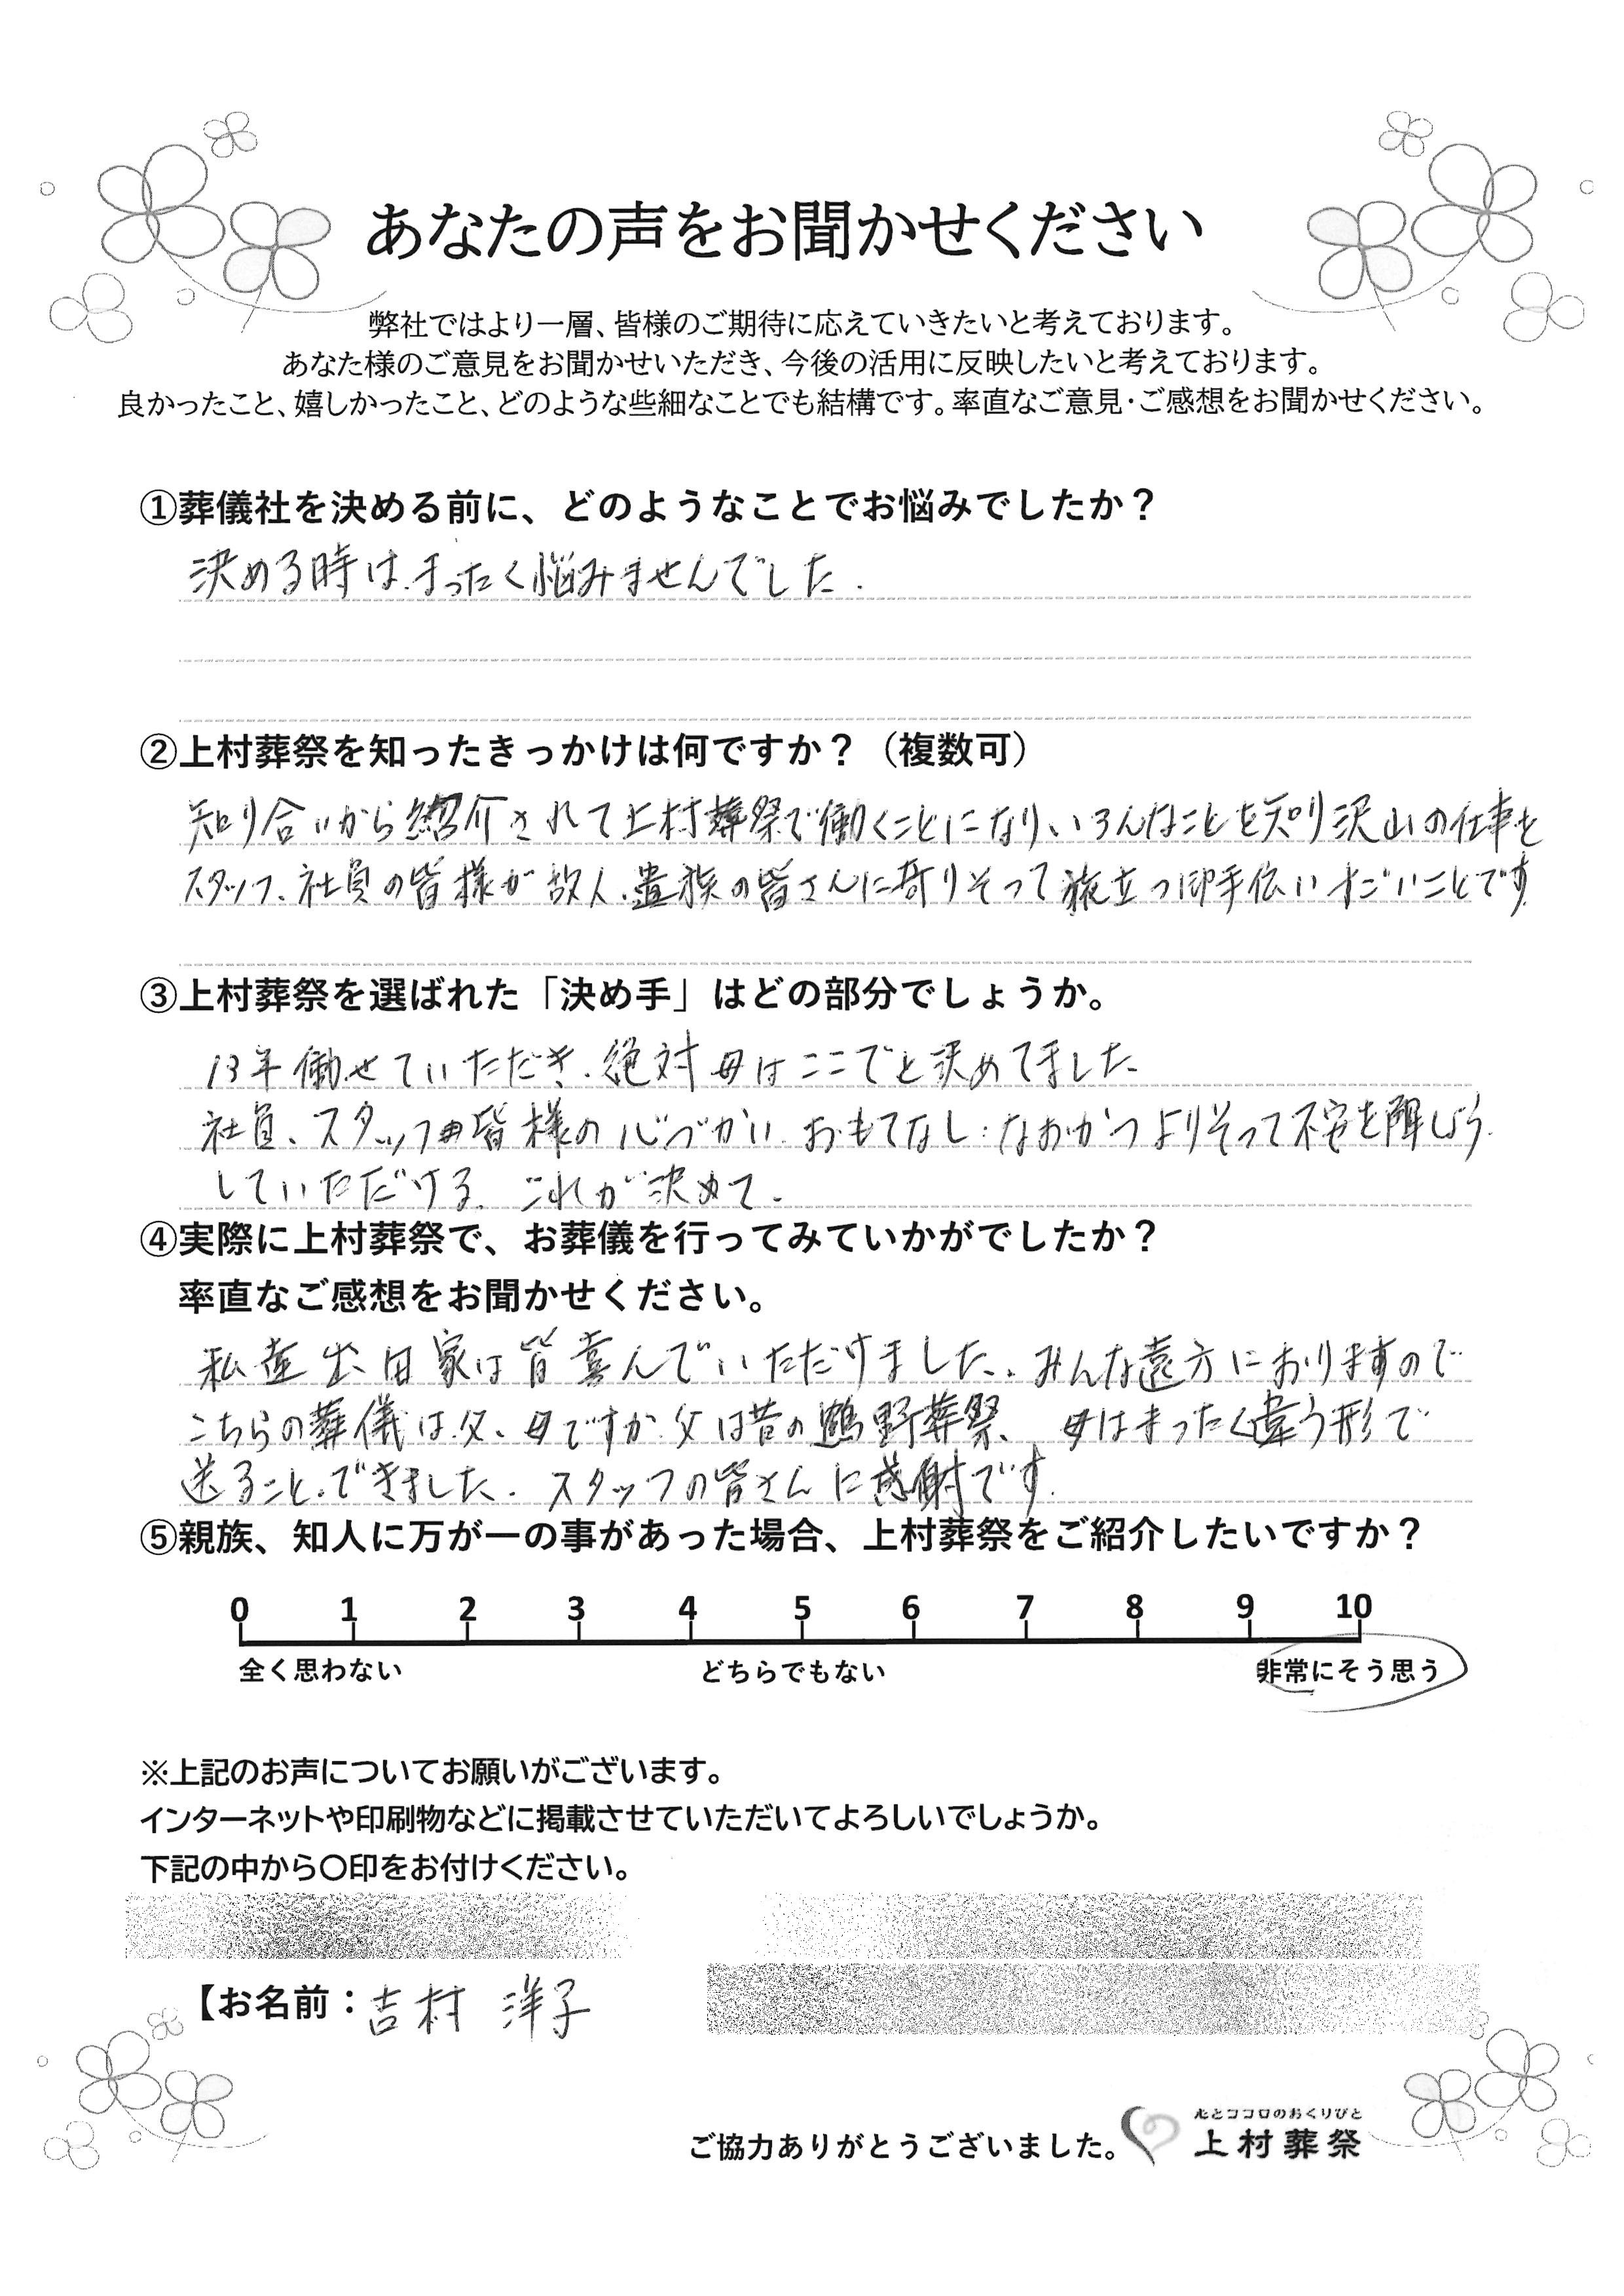 あなたの声をお聞かせください
弊社ではより一層、皆様のご期待に応えていきたいと考えております。
あなた様のご意見をお聞かせいただき、今後の活用に反映したいと考えております。
良かったこと、嬉しかったこと、どのような些細なことでも結構です。率直なご意見・ご感想をお聞かせください。
①葬儀社を決める前に、どのようなことでお悩みでしたか？
決める時は、まったく悩みませんでした.
②上村葬祭を知ったきっかけは何ですか？（複数可）
知り合いから紹介されて上村葬祭で働くことになり、いろんなことを知り沢山の仕事を
スタッフ、社員の皆様が故人、遺族の皆さんに寄りそって旅立つ御手伝いすごいことです
③上村葬祭を選ばれた「決め手」はどの部分でしょうか。
13年働せていただき、絶対母はここでと決めてました
社員、スタッフ皆様の心づかい、おもてなし、なおかつよりそって不安を
していただける。これが決めて。
④実際に上村葬祭で、お葬儀を行ってみていかがでしたか？
率直なご感想をお聞かせください。
私達 家は皆喜んでいただけました、みんな遠方におりますので
こちらの葬儀は父、母ですが父は昔の鶴野葬祭、母はまったく違う形で
送ること、できました. スタッフの皆さんに感謝です.
⑤親族、知人に万が一の事があった場合、上村葬祭をご紹介したいですか？
0 1 2 3 4 5 6 7 8 9 10
全く思わない どちらでもない 非常にそう思う
※上記のお声についてお願いがございます。
インターネットや印刷物などに掲載させていただいてよろしいでしょうか。
下記の中から〇印をお付けください。
【お名前：吉村 洋子
心とココロのおくりびと
ご協力ありがとうございました。 上村葬祭